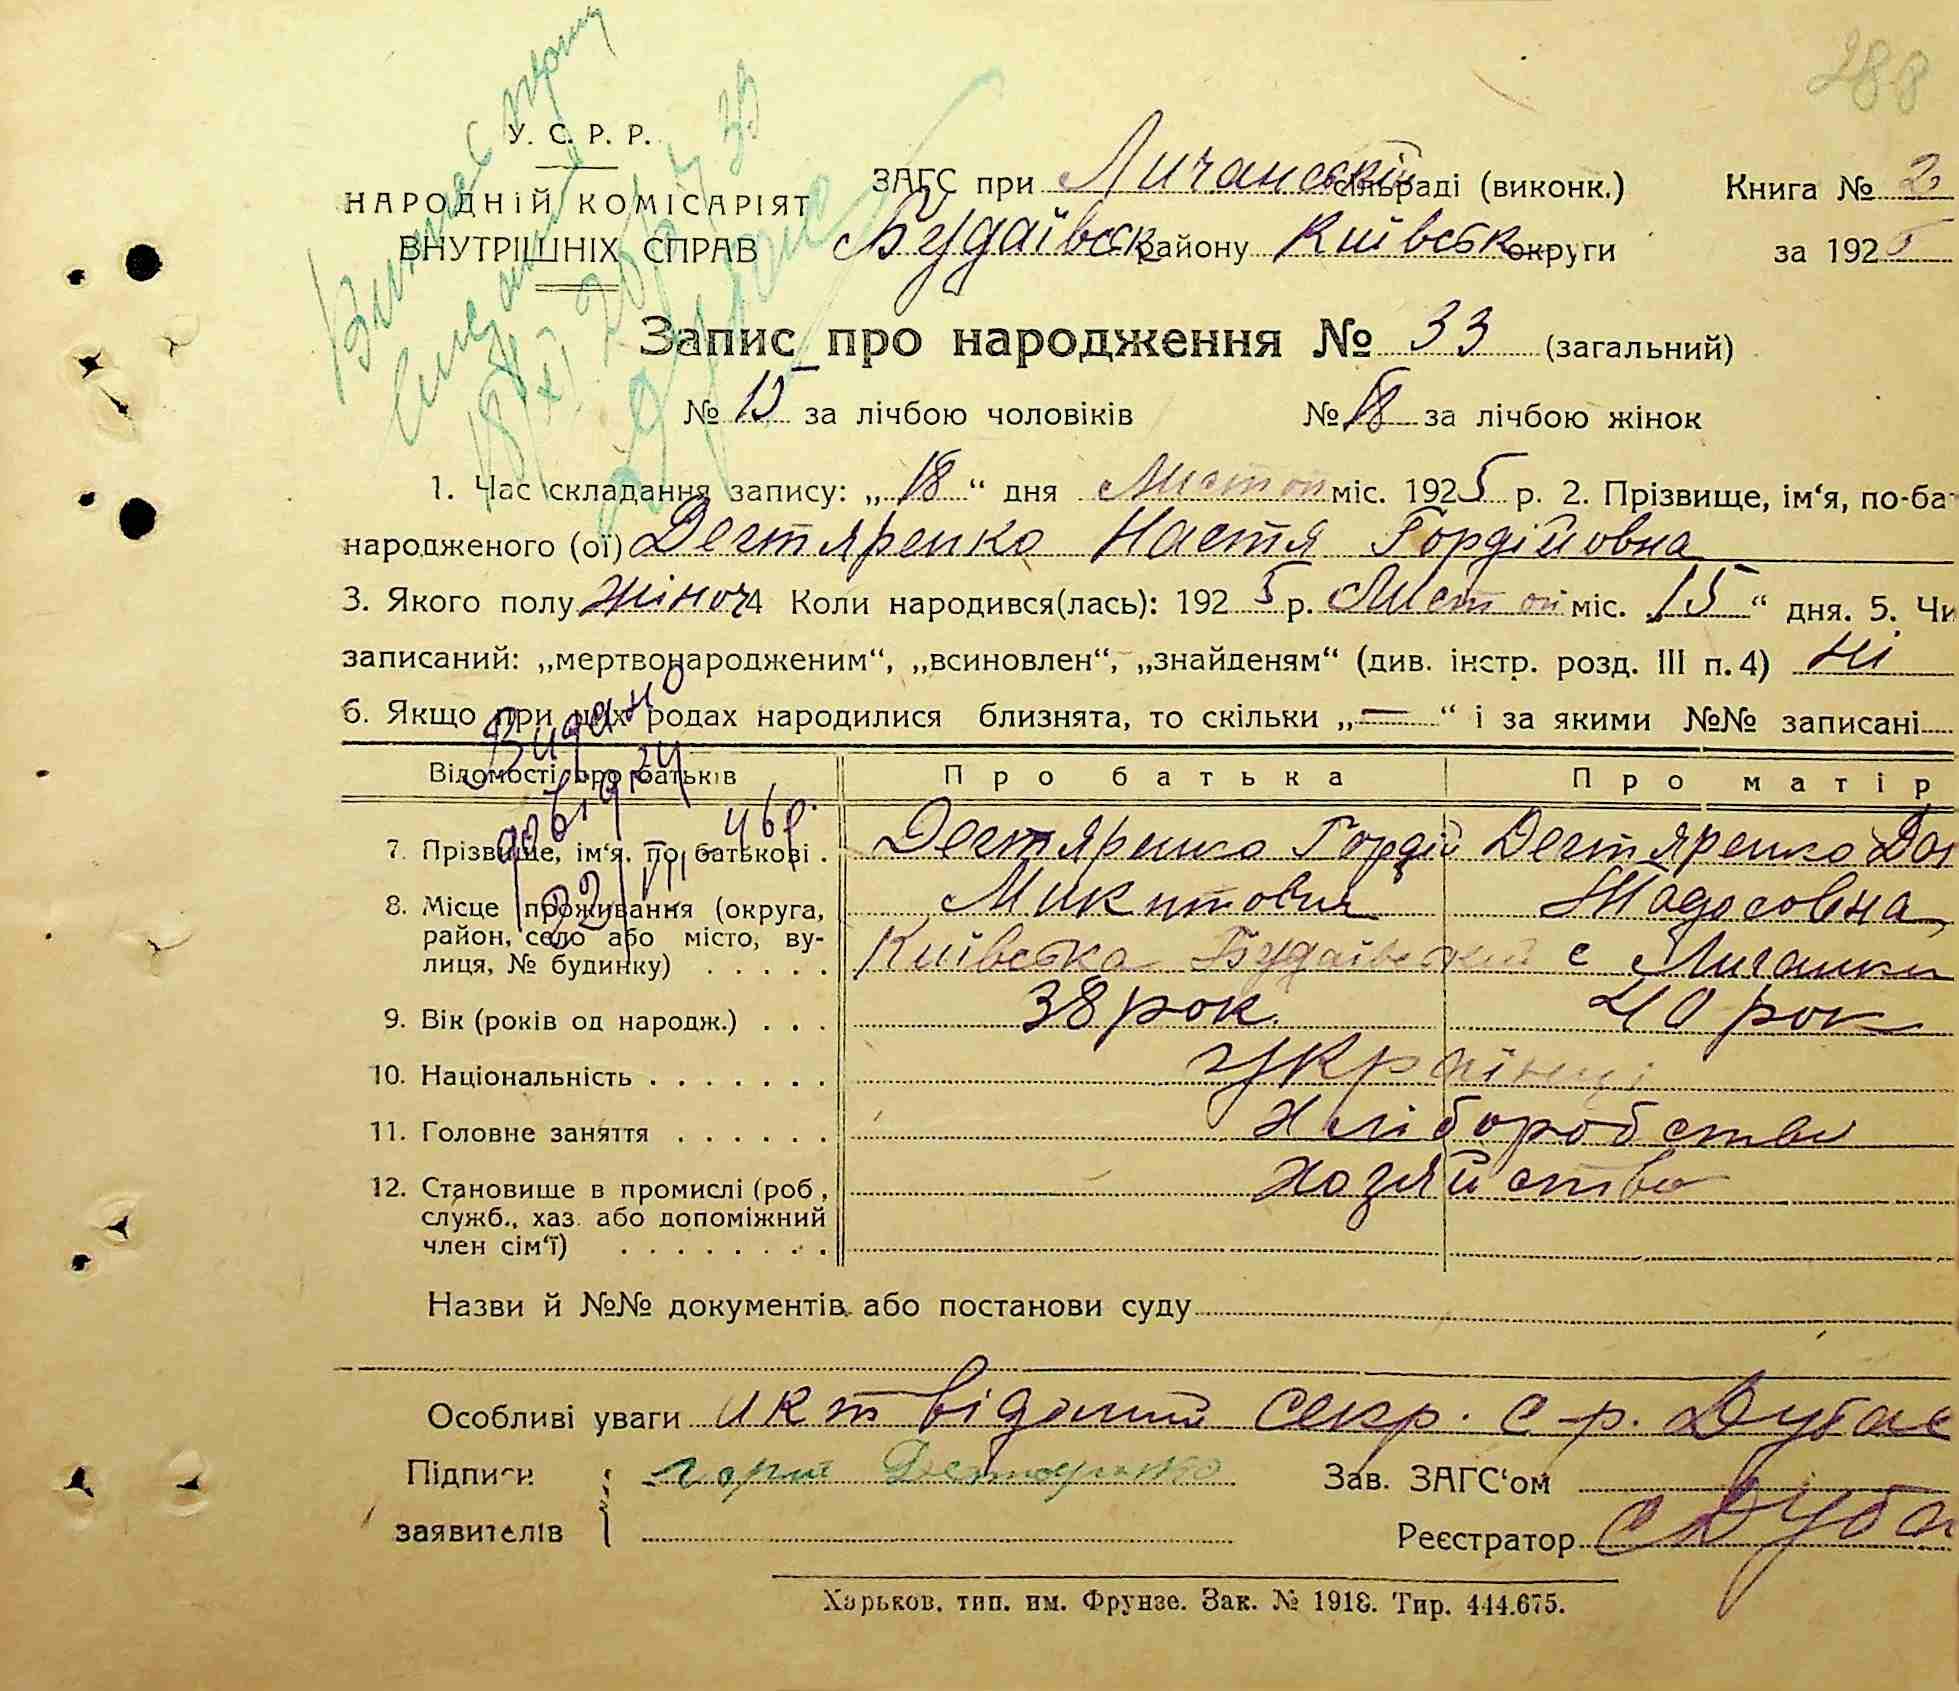 288
У. С. Р. Р.
НАРОДНІЙ КОМІСАРІЯТ
ВНУТРІШНІХ СПРАВ
ЗАГС при Личанській сільраді (виконк.) Книга № 2
Будаївськ району Київськ округи за 1925
Запис про народження № 33 (загальний)
№ 15 за лічбою чоловіків № 18 за лічбою жінок
1. Час складання запису: „18“ дня Листоп міс. 1925 р. 2. Прізвище, ім‘я, по-ба
народженого (ої) Дегтяренко Настя Гордійовна
3. Якого полу жіноч 4 Коли народився(лась): 1925 р. Листоп міс. 15“ дня. 5. Чи
записаний: „мертвонародженим“, „всиновлен“, „знайденям“ (див. інстр. розд. III п. 4) ні
6. Якщо при цих родах народилися близнята, то скільки „—“ і за якими №№ записані
Видано
довідку
Відомості про батьків Про батька Про матір
7. Прізвище, ім‘я, по батькові . Дегтяренко Гордій Дегтяренко
Микитович Тодосовна
8. Місце проживання (округа,
район, село або місто, ву-
лиця, № будинку) . . . . . Київська Будаївський с Личанки
9. Вік (років од народж.) . . . 38 рок. 40 рок
10. Національність . . . . . . . українці
11. Головне заняття . . . . . . хліборобство
12. Становище в промислі (роб.,
служб., хаз. або допоміжний
член сім‘ї) . . . . . . . . хозяйство
Назви й №№ документів або постанови суду
Особливі уваги акт відомий секр. с-р.
Підписи
заявителів
Дегтяренко
Зав. ЗАГС‘ом
Реєстратор
Харьков. тип. им. Фрунзе. Зак. № 1918. Тир. 444.675.